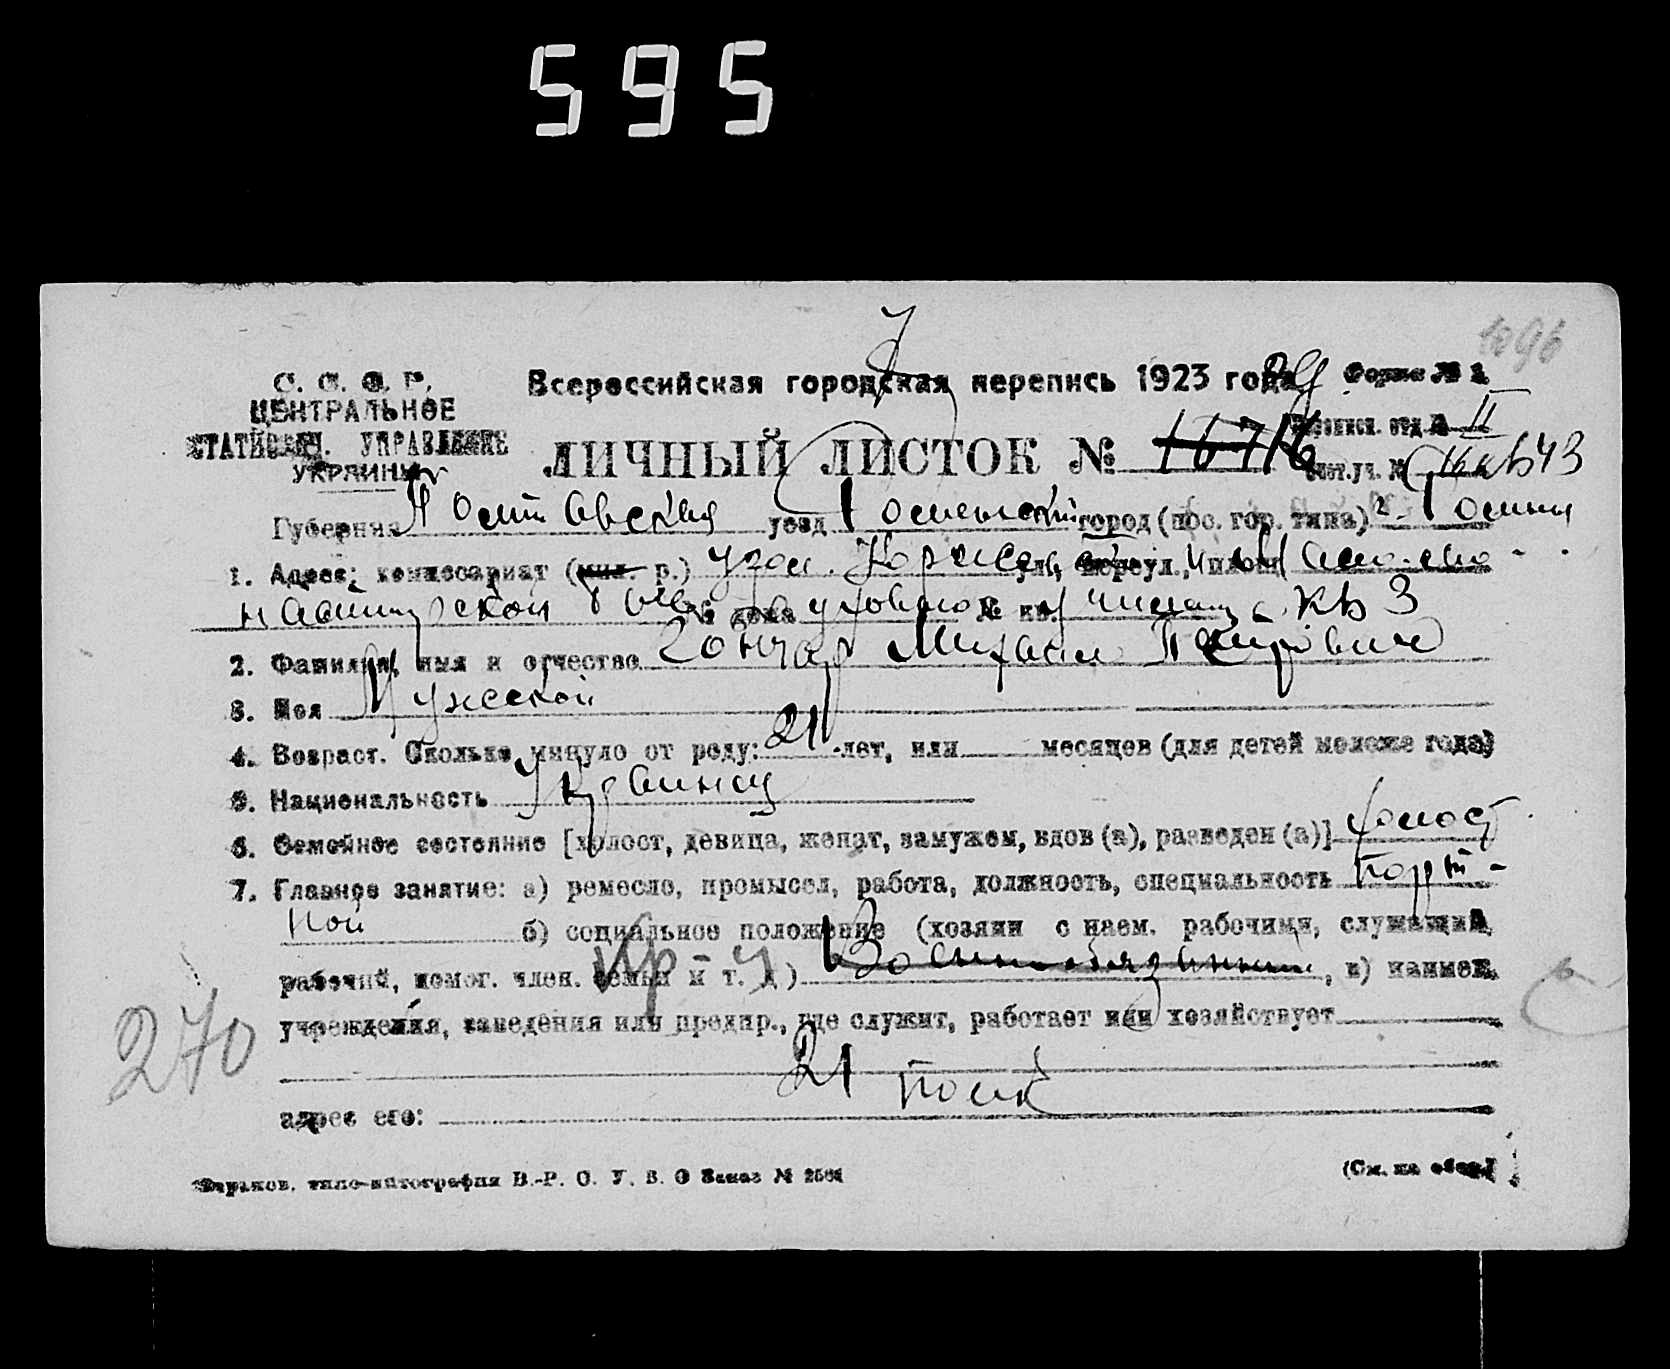 595
1896
С. С. С. Р.
ЦЕНТРАЛЬНОЕ
СТАТИСТИЧ. УПРАВЛЕНИЕ
УКРАИНЫ
Всероссийская городская перепись 1923 года
Форма № 1
ЛИЧНЫЙ ЛИСТОК №
Переписн. отд. № II
Сч.уч. № 43
Губерния Полтавская уезд Роменский город (пос. гор. типа) г. Ромны
1. Адрес: комиссариат (мил. р.) угол ул., переул., площ.
№ дома № кв. кв 3
2. Фамилия, имя и отчество Гончар Михаил Петрович
3. Пол Мужской
4. Возраст. Сколько минуло от роду: 21 лет, или месяцев (для детей моложе года)
5. Национальность Украинец
6. Семейное состояние [холост, девица, женат, замужем, вдов (а), разведен (а)] холост
7. Главное занятие: а) ремесло, промысел, работа, должность, специальность Порт-
ной б) социальное положение (хозяин с наем. рабочими, служащий,
рабочий, помог. член. семьи и т. д.) , в) наимен.
учреждения, заведения или предпр., где служит, работает или хозяйствует
270
21
адрес его:
Харьков. типо-литография В.-Р. О. У. В. О Заказ №
(См. на обор.)